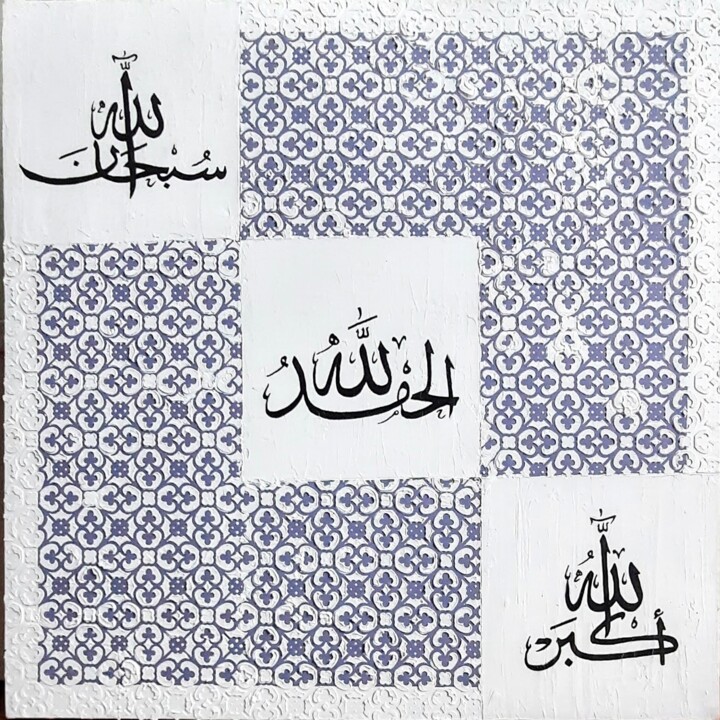 سُبْحَانَ اللّٰه
الحَمْدُ للّٰه
اللّٰهُ أَكبَر